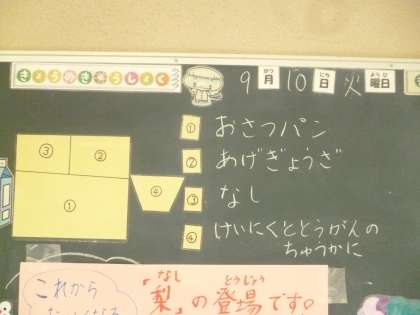 きょうのきゅうしょく
9月10日火曜日
がつ にち ようび
① おさつパン
② あげぎょうざ
③ なし
④ けいにくととうがんの
ちゅうかに
③ ②
① ④
なし とうじょう
「梨」の登場です。
これから